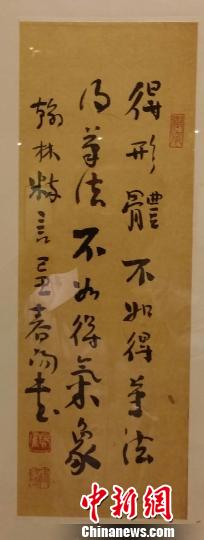 得形體不如得筆法
得筆法不如得氣象
翰林粹言己丑春書
中新网
Chinanews.com